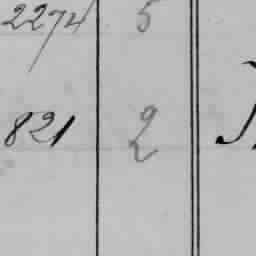 2274 5
821 2